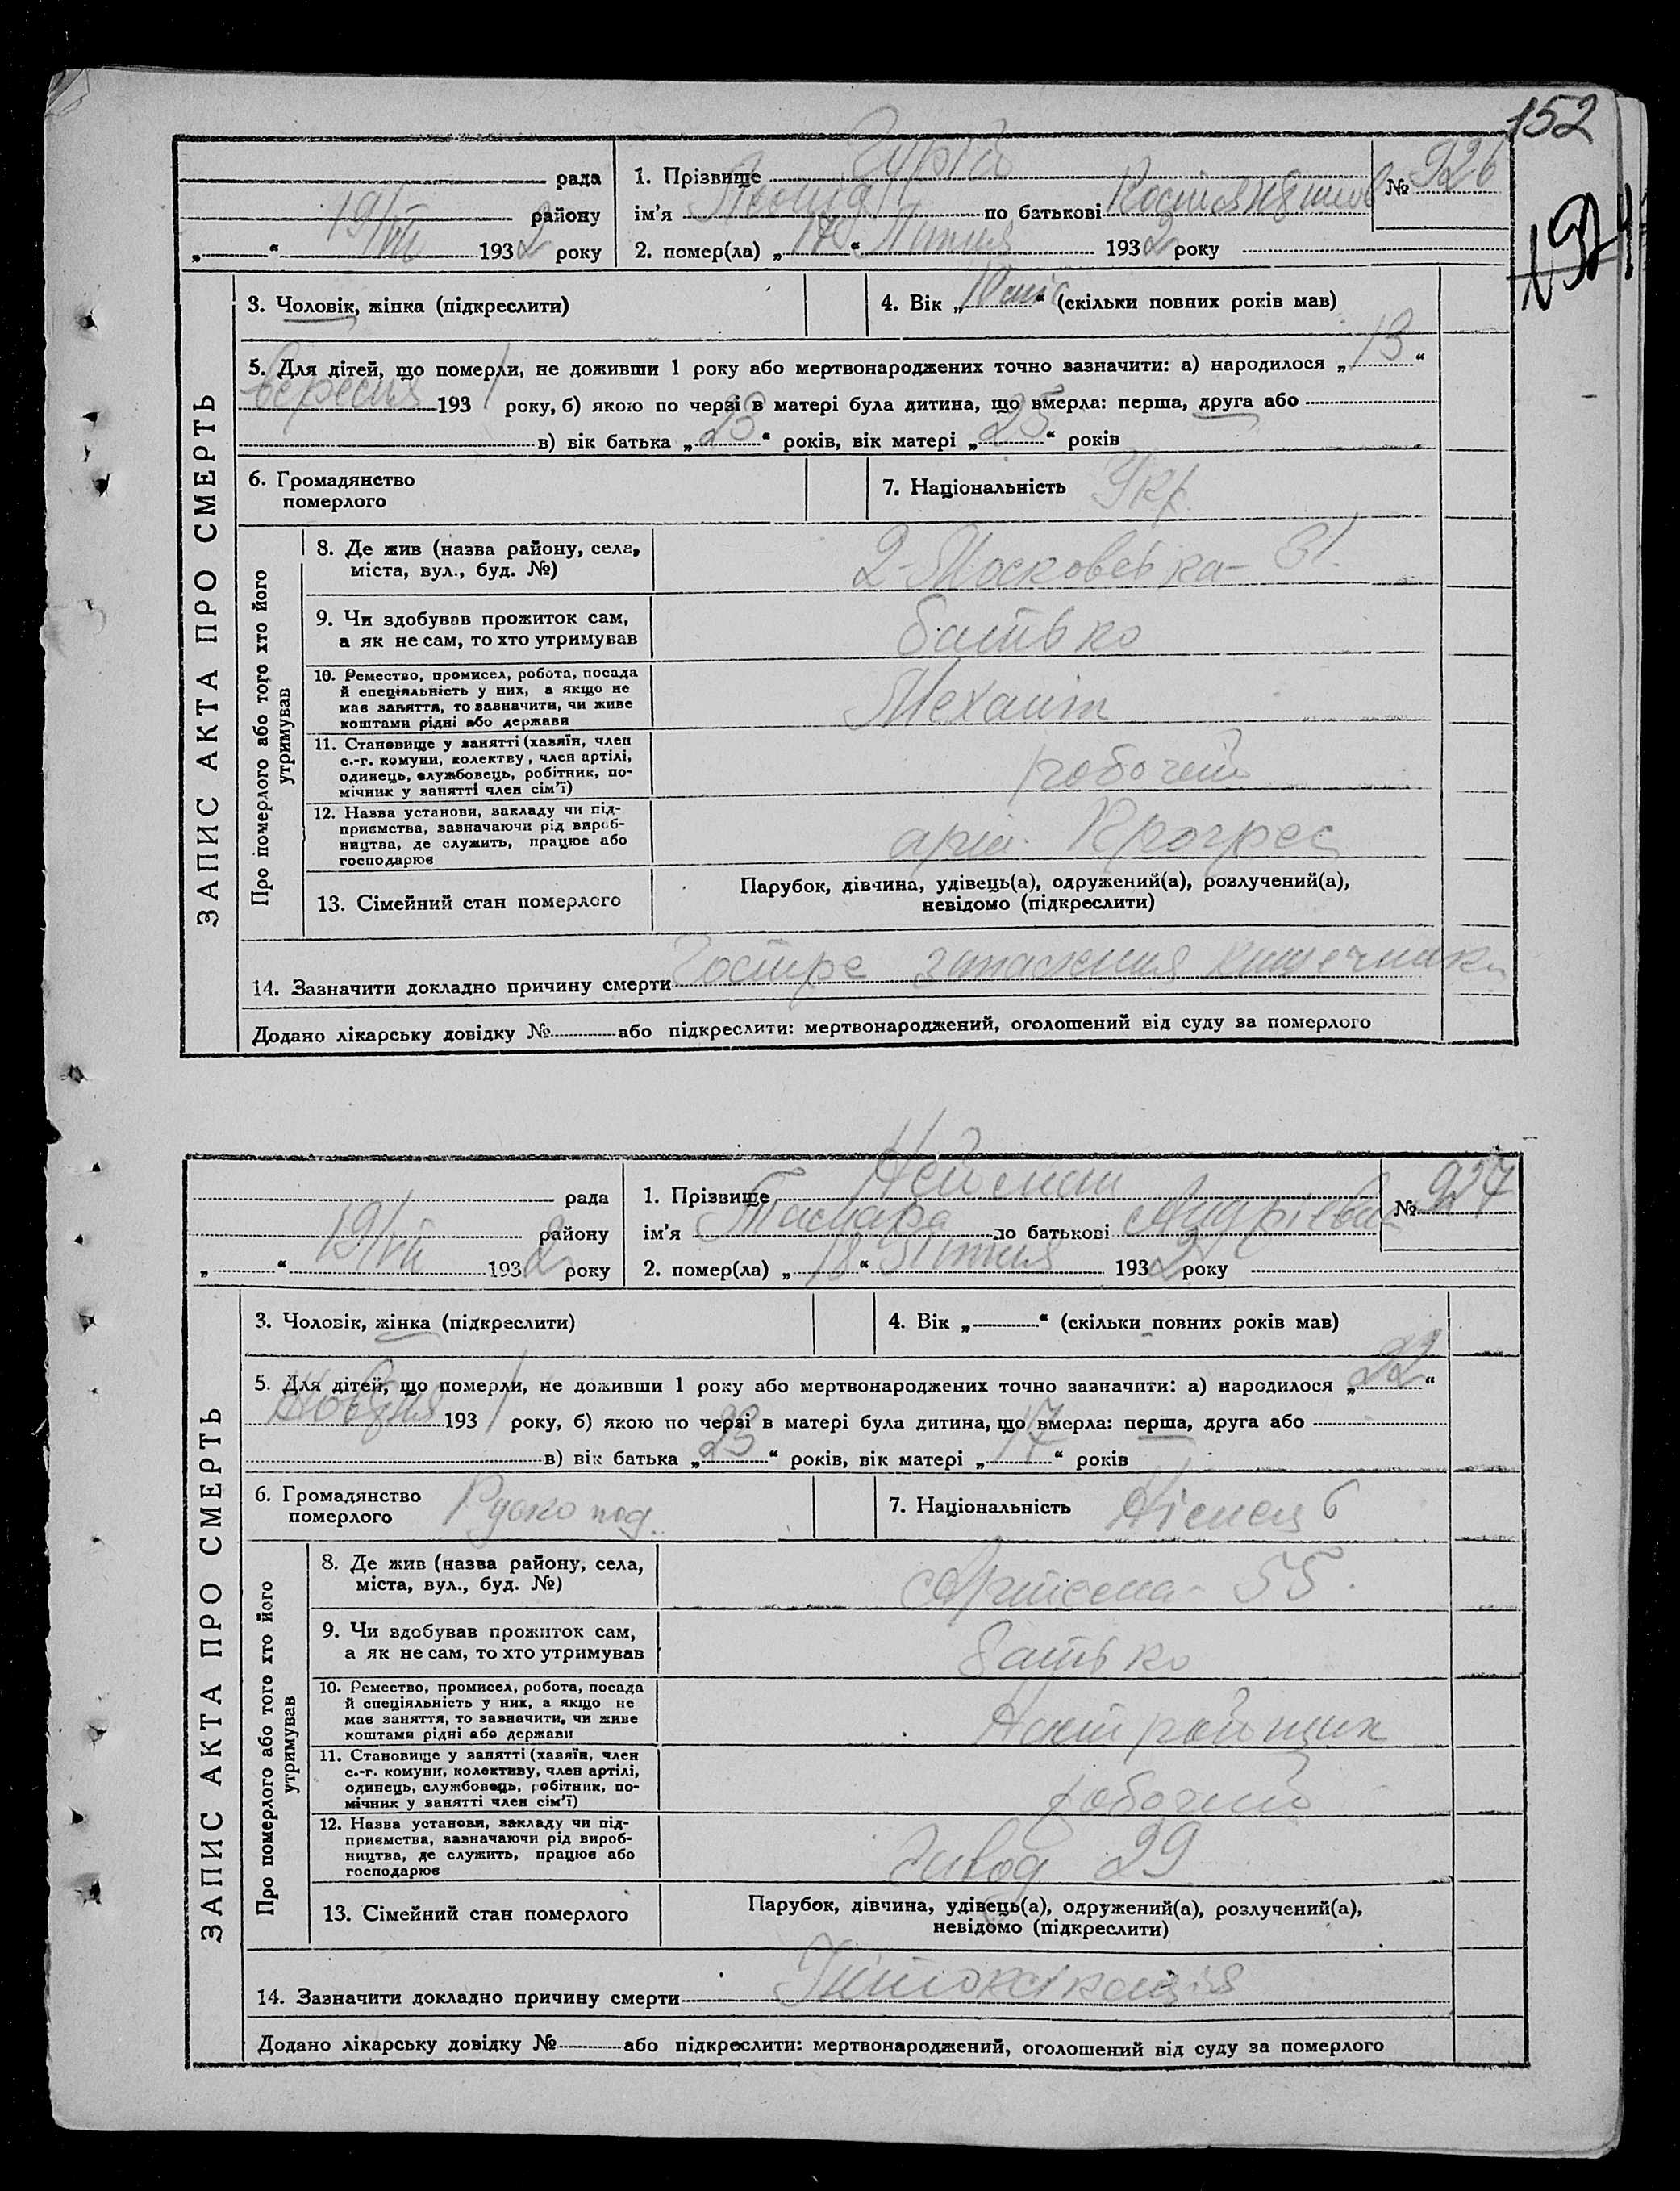 152
рада
1. Прізвище
№ 926
19/VII району
ім'я Леонід по батькові Костянтинов
„ “ 1932 року
2. помер(ла) „17“ Липня 1932 року
ЗАПИС АКТА ПРО СМЕРТЬ
3. Чоловік, жінка (підкреслити)
4. Вік „10 міс“ (скільки повних років мав)
5. Для дітей, що померли, не доживши 1 року або мертвонароджених точно зазначити: а) народилося „13“
вересня 1931 року, б) якою по черзі в матері була дитина, що вмерла: перша, друга або
в) вік батька „28“ років, вік матері „25“ років
6. Громадянство
померлого
7. Національність Укр.
Про померлого або того хто його
утримував
8. Де жив (назва району, села,
міста, вул., буд. №)
2-Московська-
9. Чи здобував прожиток сам,
а як не сам, то хто утримував
батько
10. Ремество, промисел, робота, посада
й спеціяльність у них, а якщо не
має заняття, то зазначити, чи живе
коштами рідні або держави
Механік
11. Становище у занятті (хазяїн, член
с.-г. комуни, колектву, член артілі,
одинець, службовець, робітник, по-
мічник у занятті член сім'ї)
робочий
12. Назва установи, закладу чи під-
приємства, зазначаючи рід вироб-
ництва, де служить, працює або
господарює
арт. Прогрес
13. Сімейний стан померлого
Парубок, дівчина, удівець(а), одружений(а), розлучений(а),
невідомо (підкреслити)
14. Зазначити докладно причину смерти Гостре запалення кишечника
Додано лікарську довідку № або підкреслити: мертвонароджений, оголошений від суду за померлого
рада
1. Прізвище Нейман
№ 927
19/VII району
ім'я Тамара по батькові Андріївна
„ “ 1932 року
2. помер(ла) „18“ Липня 1932 року
ЗАПИС АКТА ПРО СМЕРТЬ
3. Чоловік, жінка (підкреслити)
4. Вік „ “ (скільки повних років мав)
5. Для дітей, що померли, не доживши 1 року або мертвонароджених точно зазначити: а) народилося „22“
Жовтня 1931 року, б) якою по черзі в матері була дитина, що вмерла: перша, друга або
в) вік батька „23“ років, вік матері „17“ років
6. Громадянство
померлого
под.
7. Національність
Про померлого або того хто його
утримував
8. Де жив (назва району, села,
міста, вул., буд. №)
Артема- 55.
9. Чи здобував прожиток сам,
а як не сам, то хто утримував
батько
10. Ремество, промисел, робота, посада
й спеціяльність у них, а якщо не
має заняття, то зазначити, чи живе
коштами рідні або держави
Настройщик
11. Становище у занятті (хазяїн, член
с.-г. комуни, колективу, член артілі,
одинець, службовець, робітник, по-
мічник у занятті член сім'ї)
робочий
12. Назва установи, закладу чи під-
приємства, зазначаючи рід вироб-
ництва, де служить, працює або
господарює
Завод 29
13. Сімейний стан померлого
Парубок, дівчина, удівець(а), одружений(а), розлучений(а),
невідомо (підкреслити)
14. Зазначити докладно причину смерти Інтоксікація
Додано лікарську довідку № або підкреслити: мертвонароджений, оголошений від суду за померлого